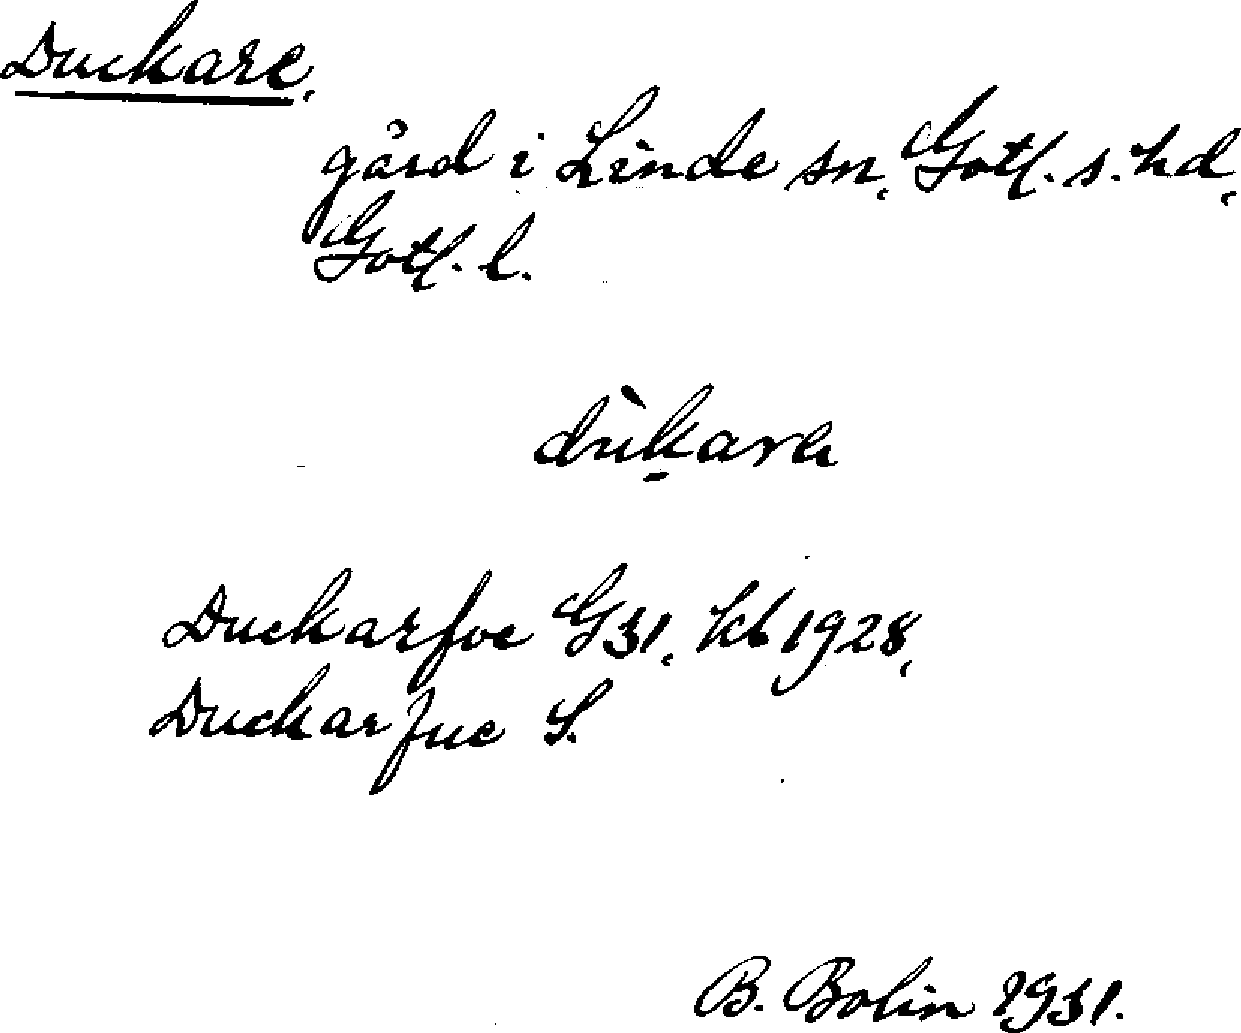 Duckare,
gård i Linde sn, Gotl. s. hd,
Gotl. l.
dùkara
Duckarfve G31, kb 1928,
Duckarfue S.
B. Bolin 1931.